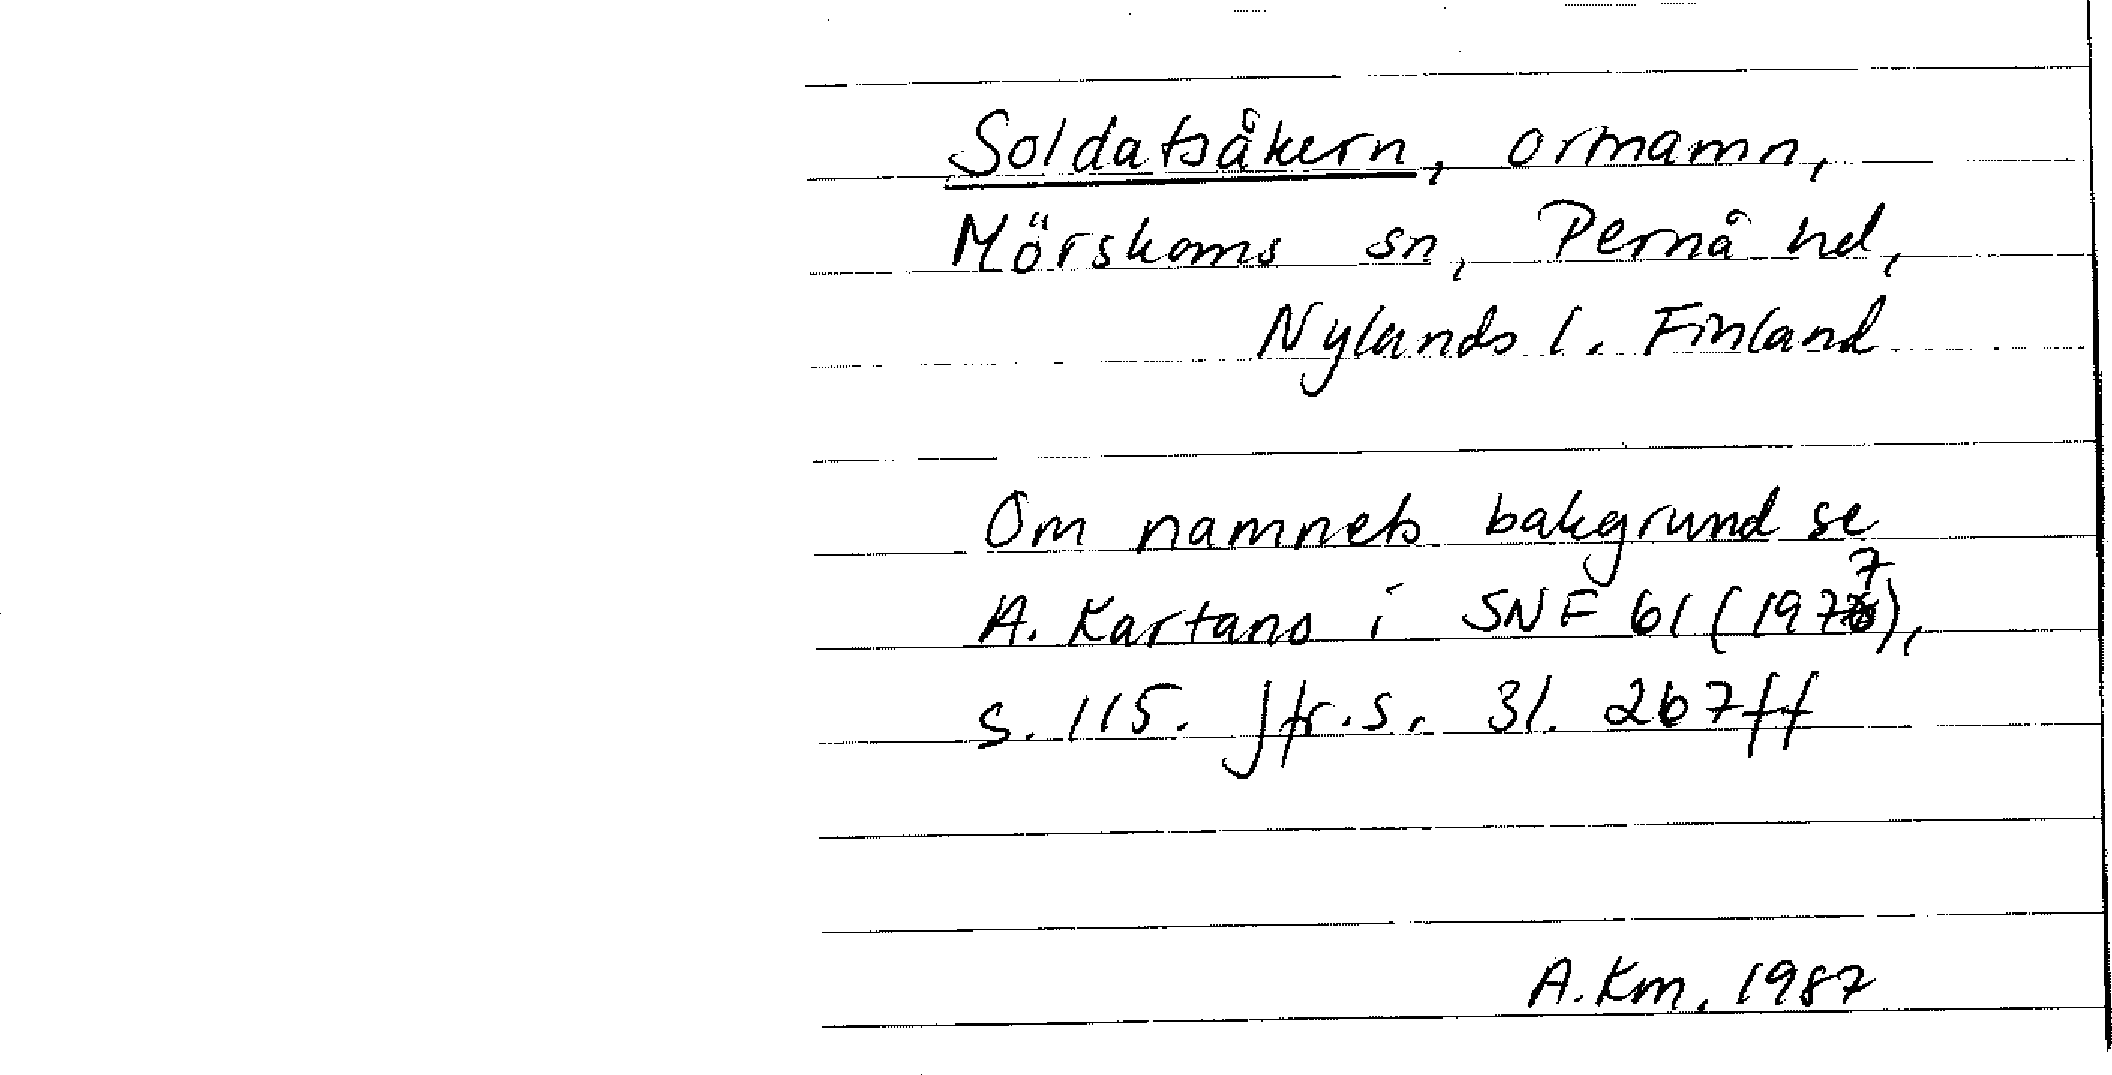 Soldatsåkern, ortnamn,
Mörskoms sn, Pernå hd,
Nylands l. Finland
Om namnets bakgrund se
A. Kartano i SNF 61 (1977),
s. 115. Jfr. s. 31. 267ff
A. Km. 1987